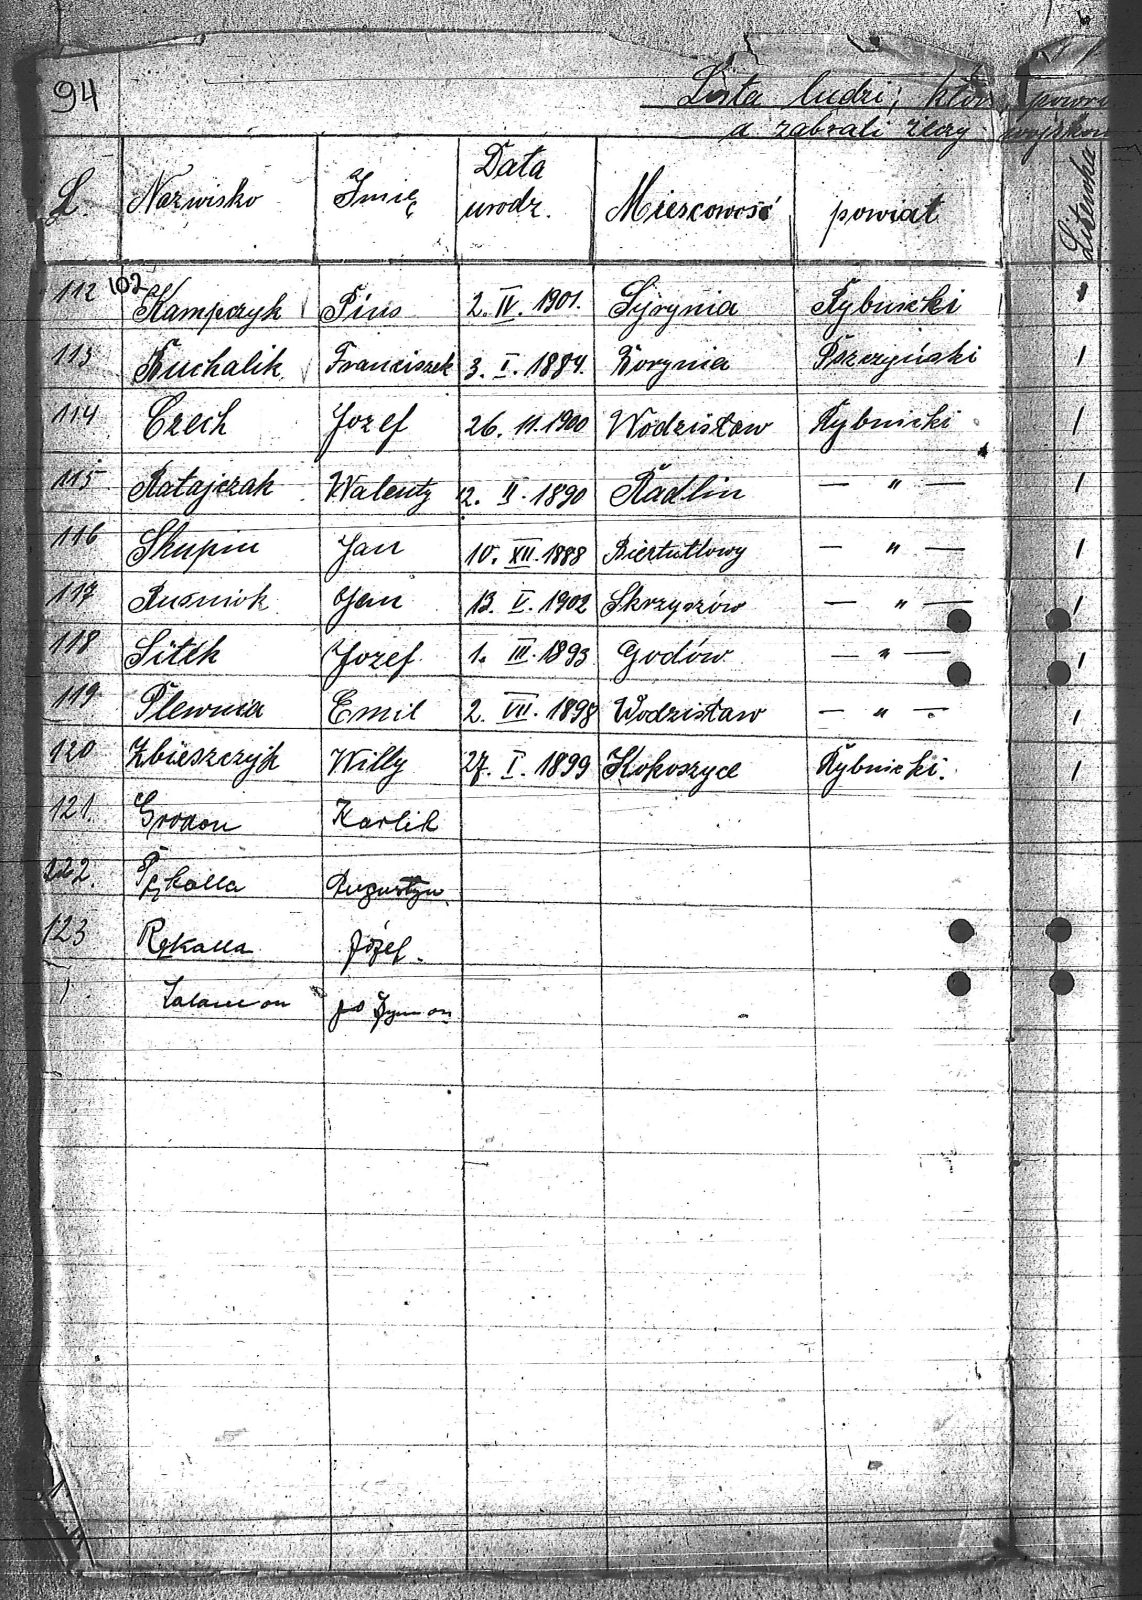 94
Lista ludzi, którz powra
a zabrali rzeczy wojskow
L. Nazwisko Imię Data urodz. Miescowość powiat
112 102 Kampczyk Pius 2. IV. 1901. Syrynia Rybnicki 1
113 Buchalik Franciszek 3. I. 1884. Borynia Pszczyński 1
114 Czech Jozef 26. 11. 1900 Wodzisław Rybnicki 1
115 Ratajczak Walenty 2. II. 1890 Radlin — " — 1
116 Skupin Jan 10. XII. 1888 Biertułtowy — " — 1
117 Rusniok Jan 13. V. 1902 Skrzyszów — " — 1
118 Sitek Jozef 1. III. 1893 Godów — " — 1
119 Plewnia Emil 2. VII. 1898 Wodzisław — " — 1
120 Zbieszczyk Willy 27. I. 1899 Kokoszyce Rybnicki. 1
121. Grodon Karlik
122. Pękalla Augustyn
123 Rękalla Józef.